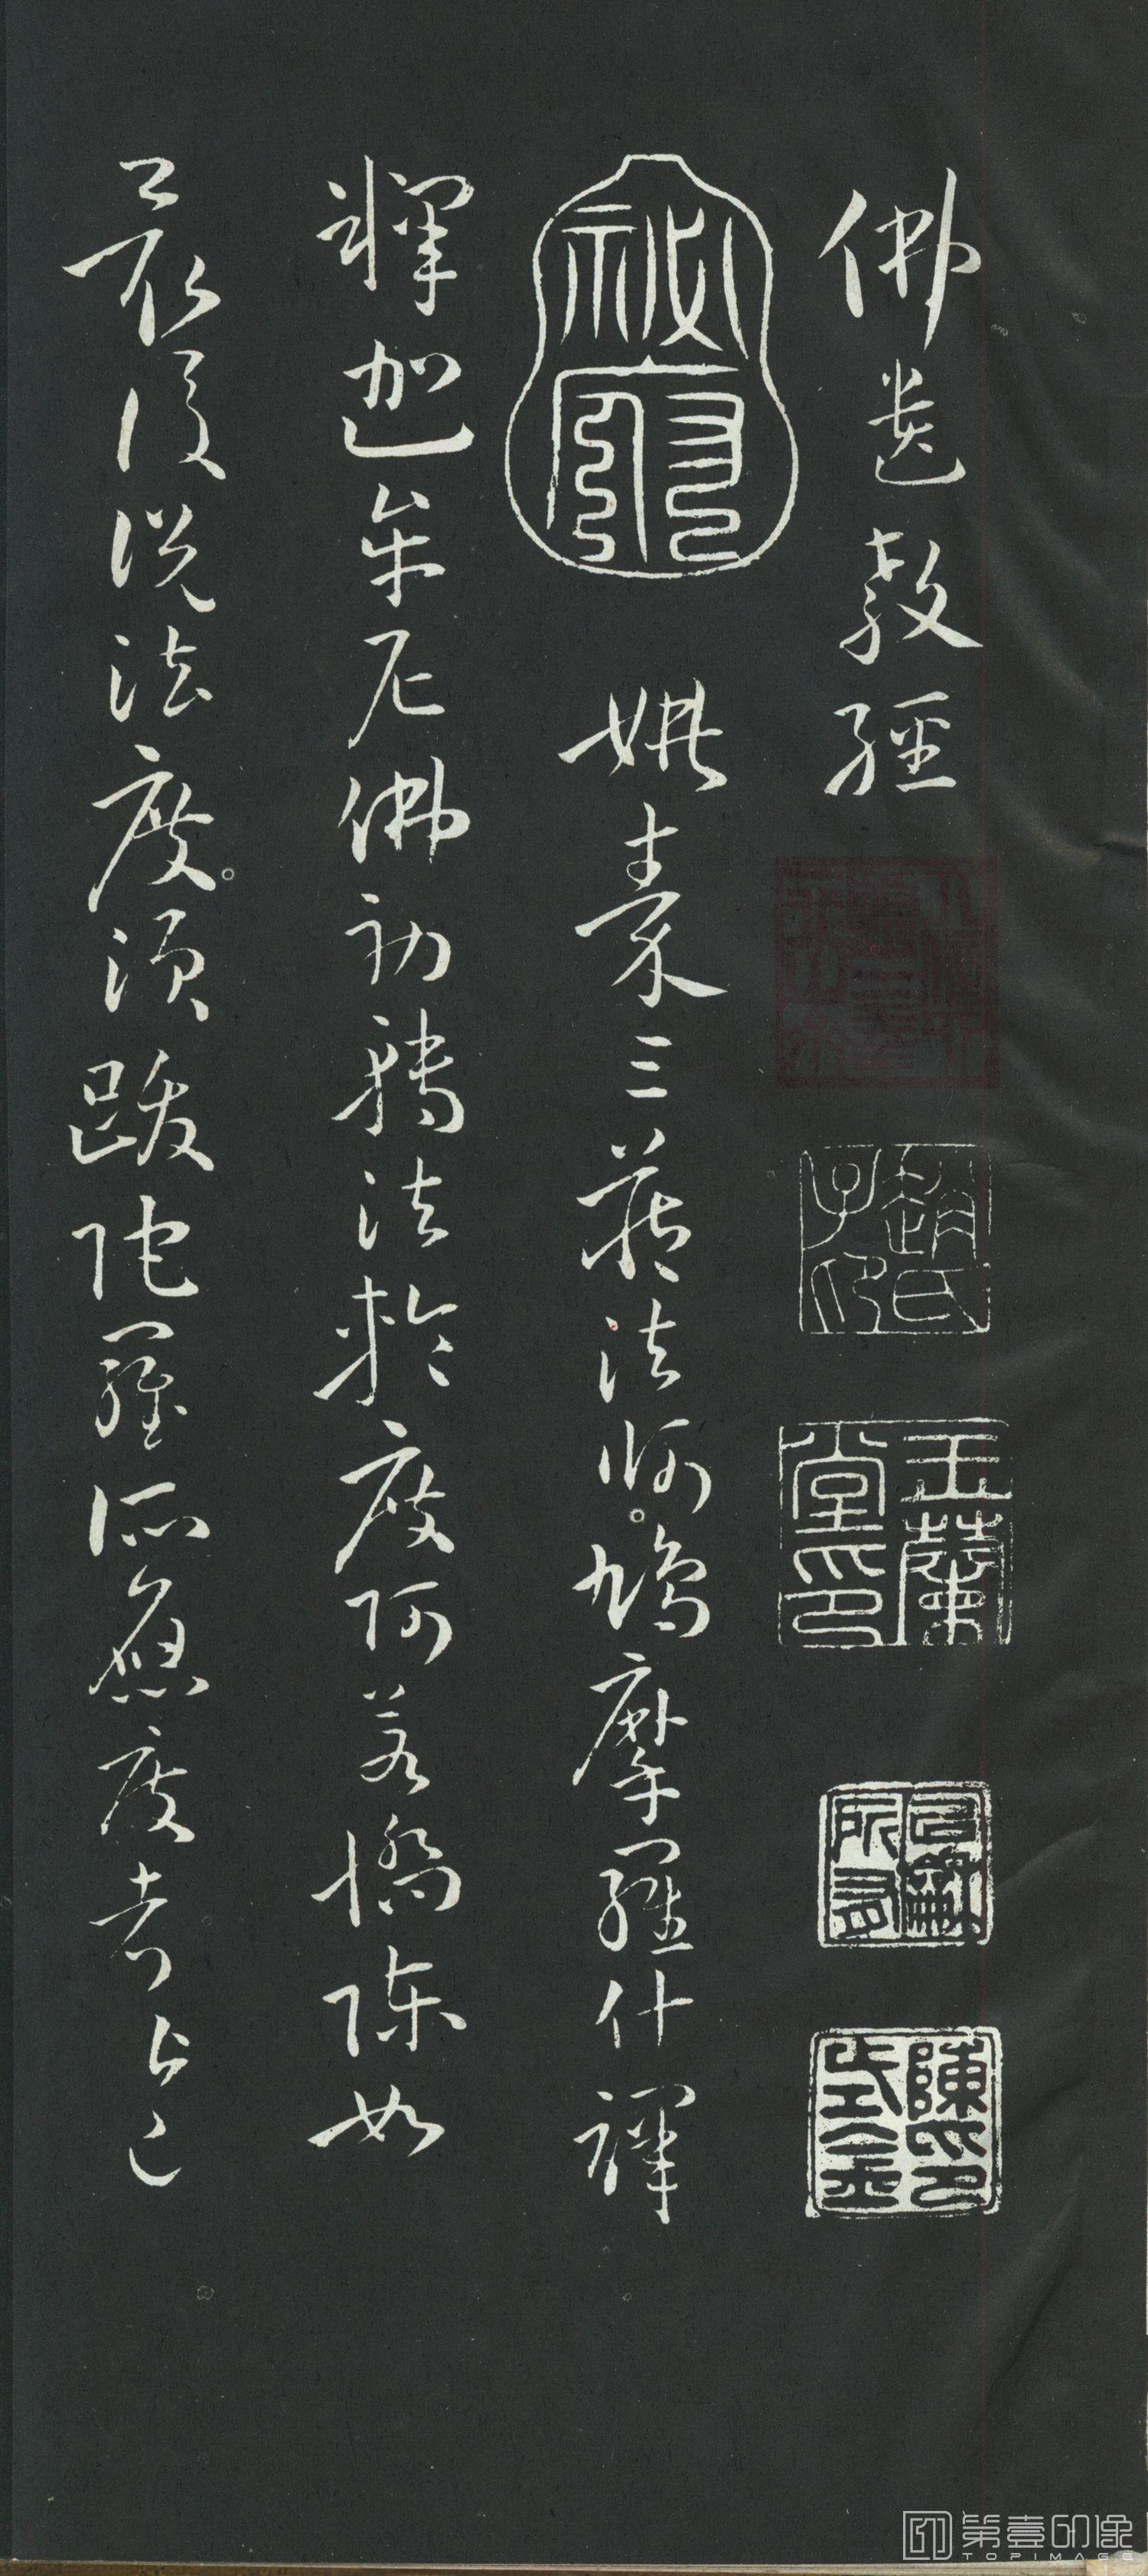 佛遺教經
趙氏子印
玉蘭堂印
陳氏
姚秦三藏法師鳩摩羅什譯
釋迦牟尼佛初轉法輪度阿若憍陳如
最後說法度須跋陀羅所應度者皆已
第壹印像
TOPIMAGE